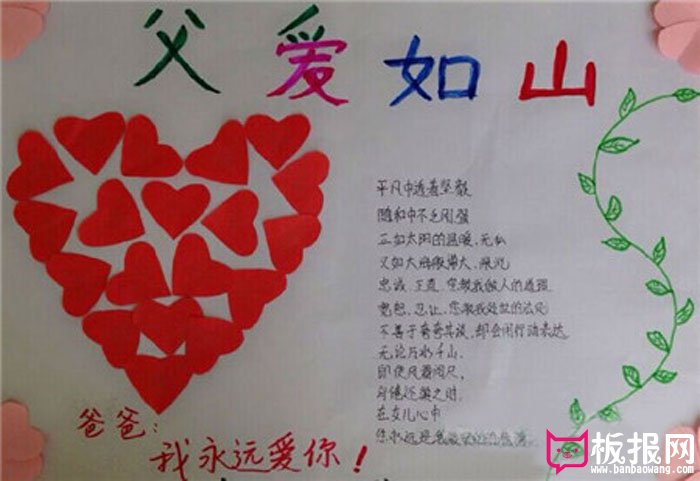 父爱如山
平凡中透着坚毅
随和中不乏刚强
正如太阳的温暖,无私
又如大海般博大、深沉
忠诚、正直,您教我做人的道理
宽恕、忍让,您教我处世的法则
不善于夸夸其谈,却会用行动表达
无论万水千山,
即使风霜
在女儿心中
您永远是我
爸爸:
我永远爱你!
板报网
www.banbaowang.com